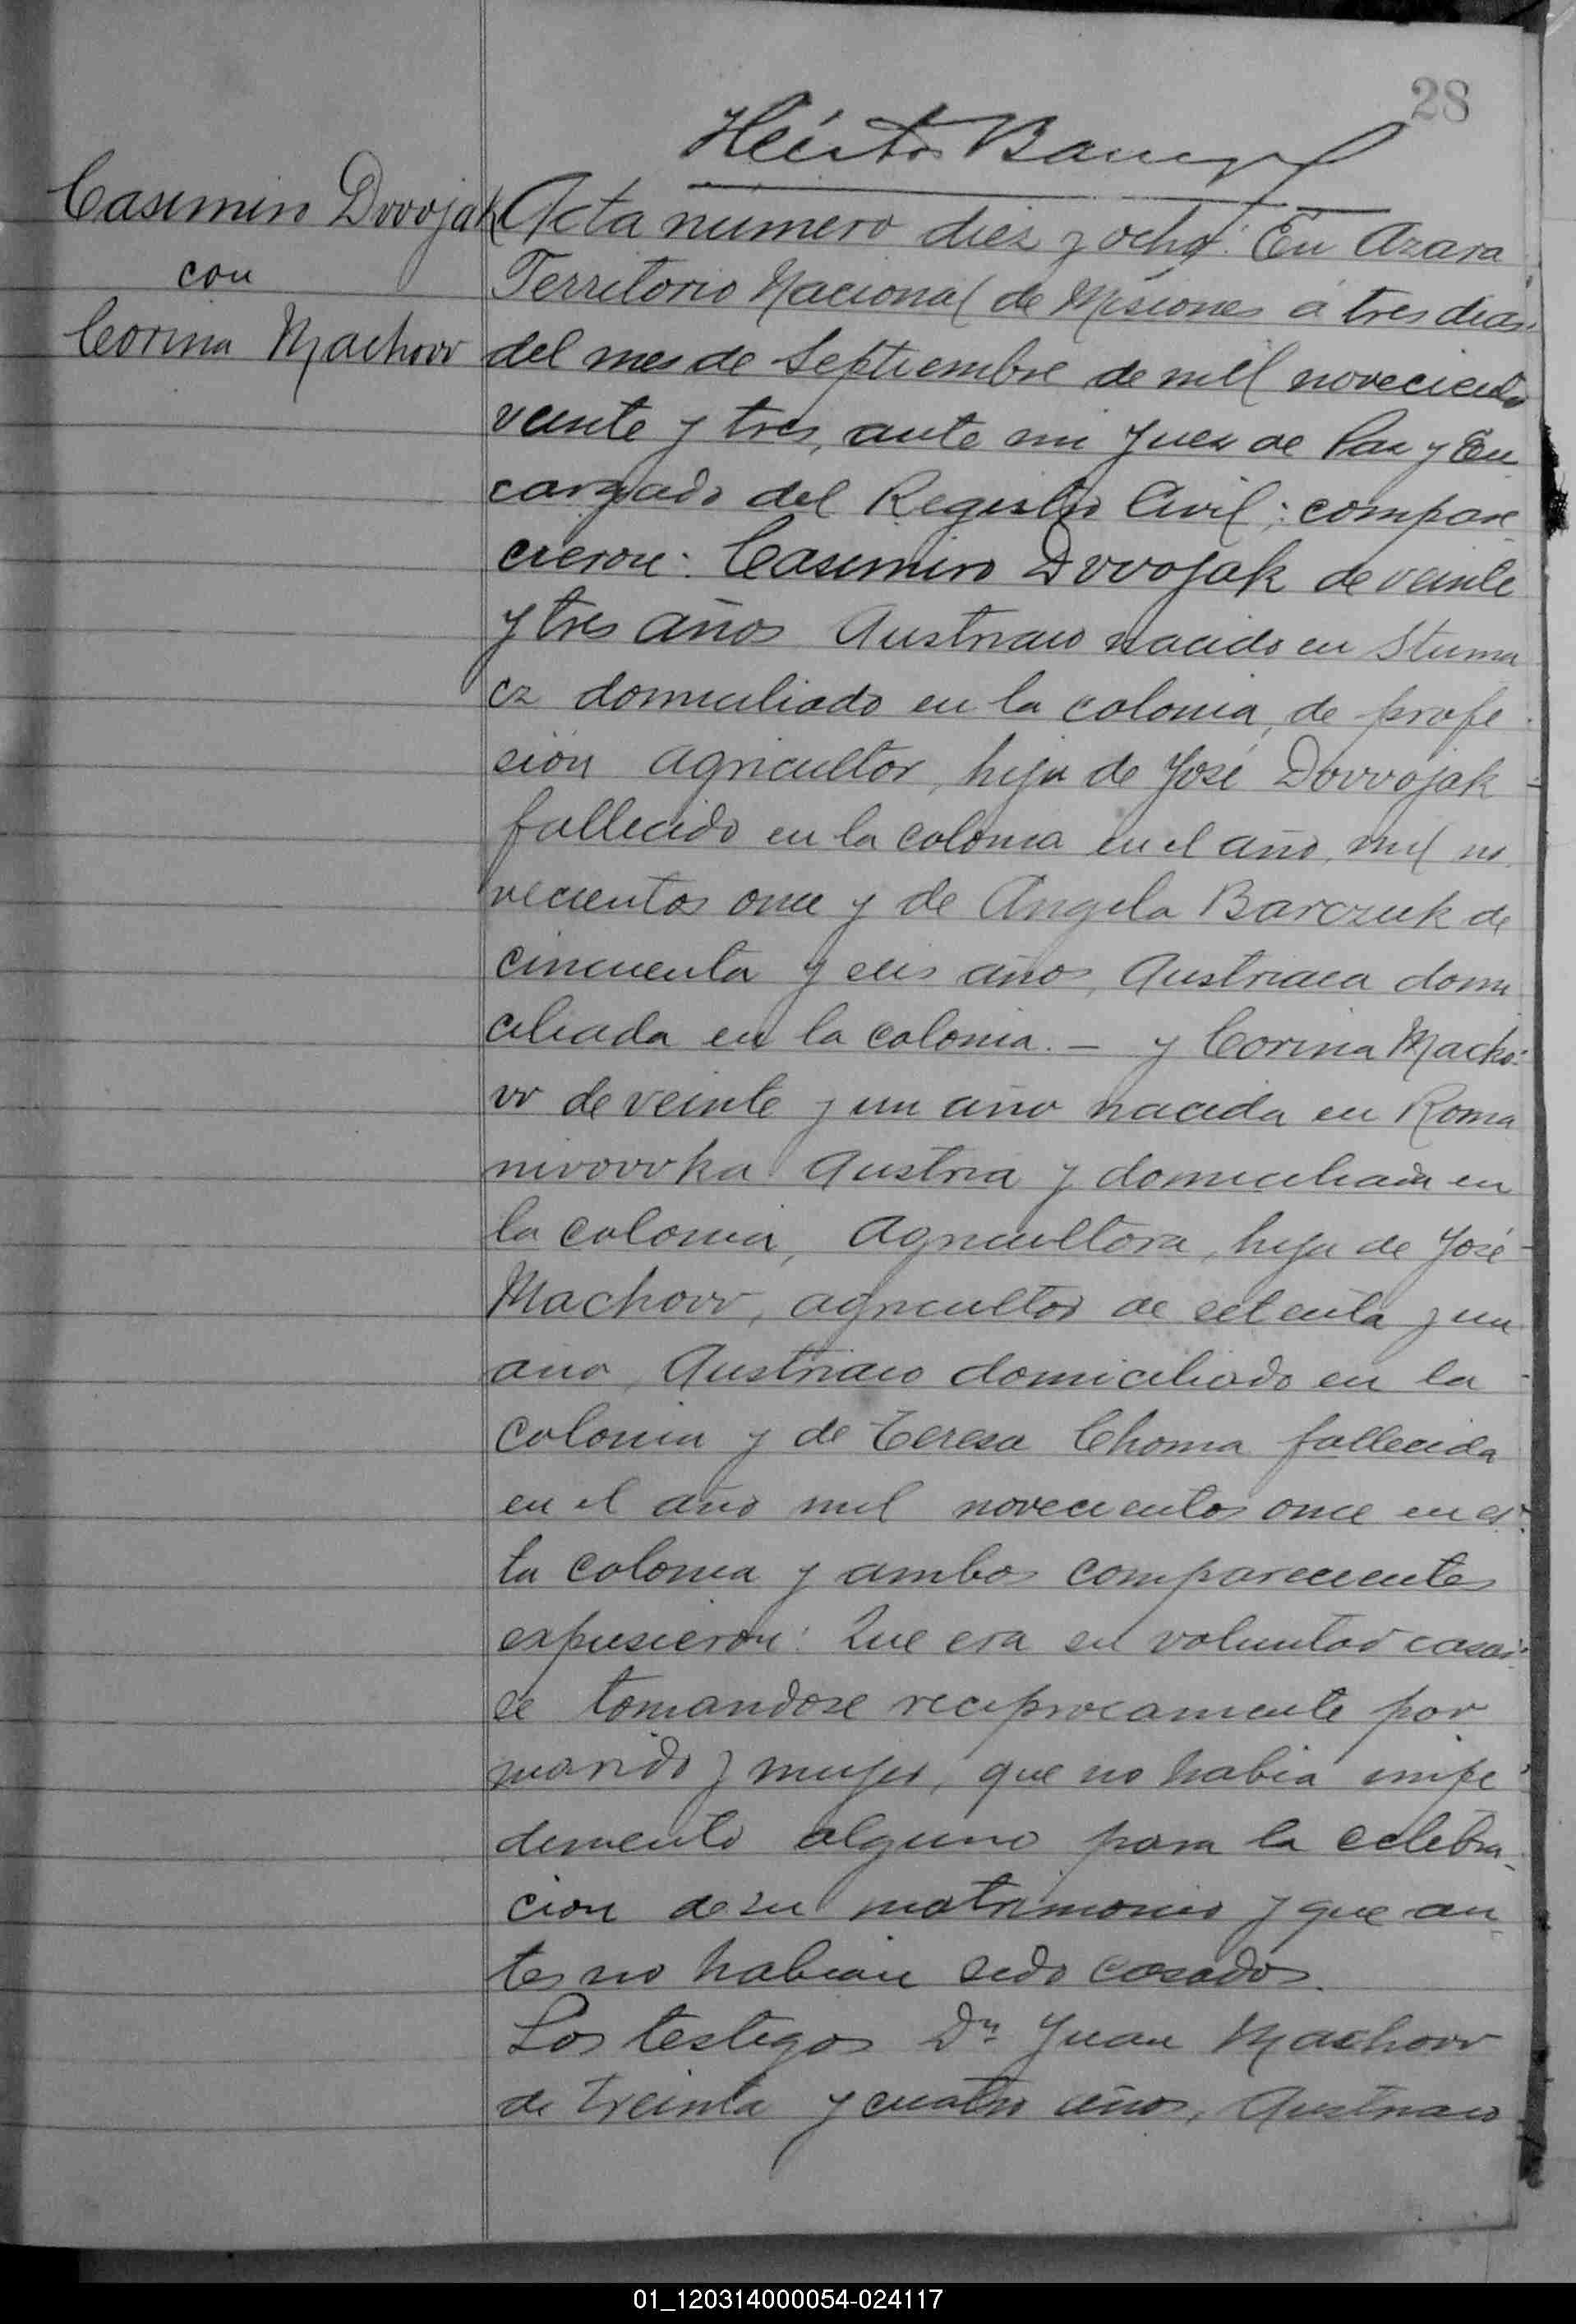 28
Casimiro Dwojak
con
Corina Machow
Acta número diez y ocho: En Azara
Territorio Nacional de Misiones á tres dias
del mes de Septiembre de mil novecientos
veinte y tres, ante mi Juez de Paz y En
cargado del Registro Civil; compare
cieron: Casimiro Dwojak de veinte
y tres años Austriaco nacido en Stuma
cz domiciliado en la colonia, de profe
sión agricultor, hijo de José Dowojak
fallecido en la colonia en el año, mil no
vecientos once y de Angela Barczuk de
cincuenta y seis años, Austriaca domi
ciliada en la colonia. — y Corina Macho
w de veinte y un año nacida en Roma
nwowka Austria y domiciliada en
la colonia, Agricultora, hija de José
Machow, agricultor de setenta y un
año, Austriaco domiciliado en la
colonia y de Teresa Choma fallecida
en el año mil novecientos once en es
ta colonia y ambos comparecientes
expusieron: Que era su voluntad casar
se tomandose reciprocamente por
marido y mujer, que no habia impe
dimento alguno para la celebra
cion de su matrimonio y que an
tes no habian sido casados.
Los testigos Dn Juan Machow
de treinta y cuatro años, Austriaco
01_120314000054-024117